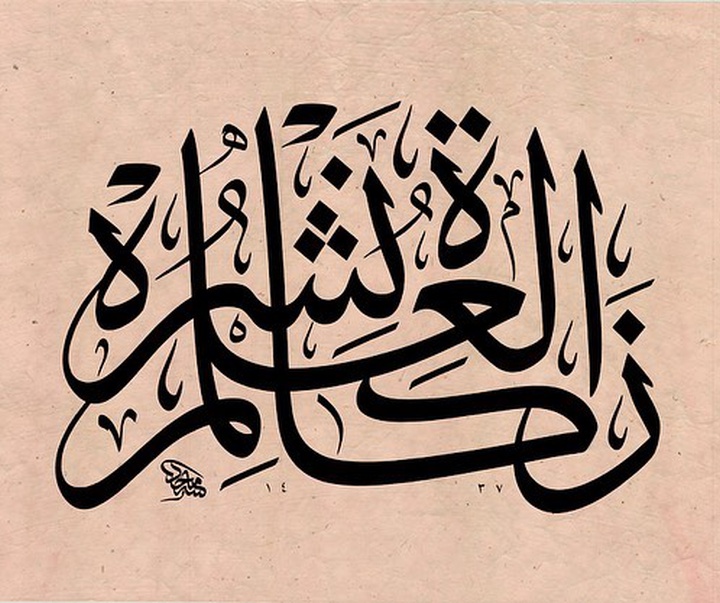 زكاة العلم نشره
١٤ ٣٧